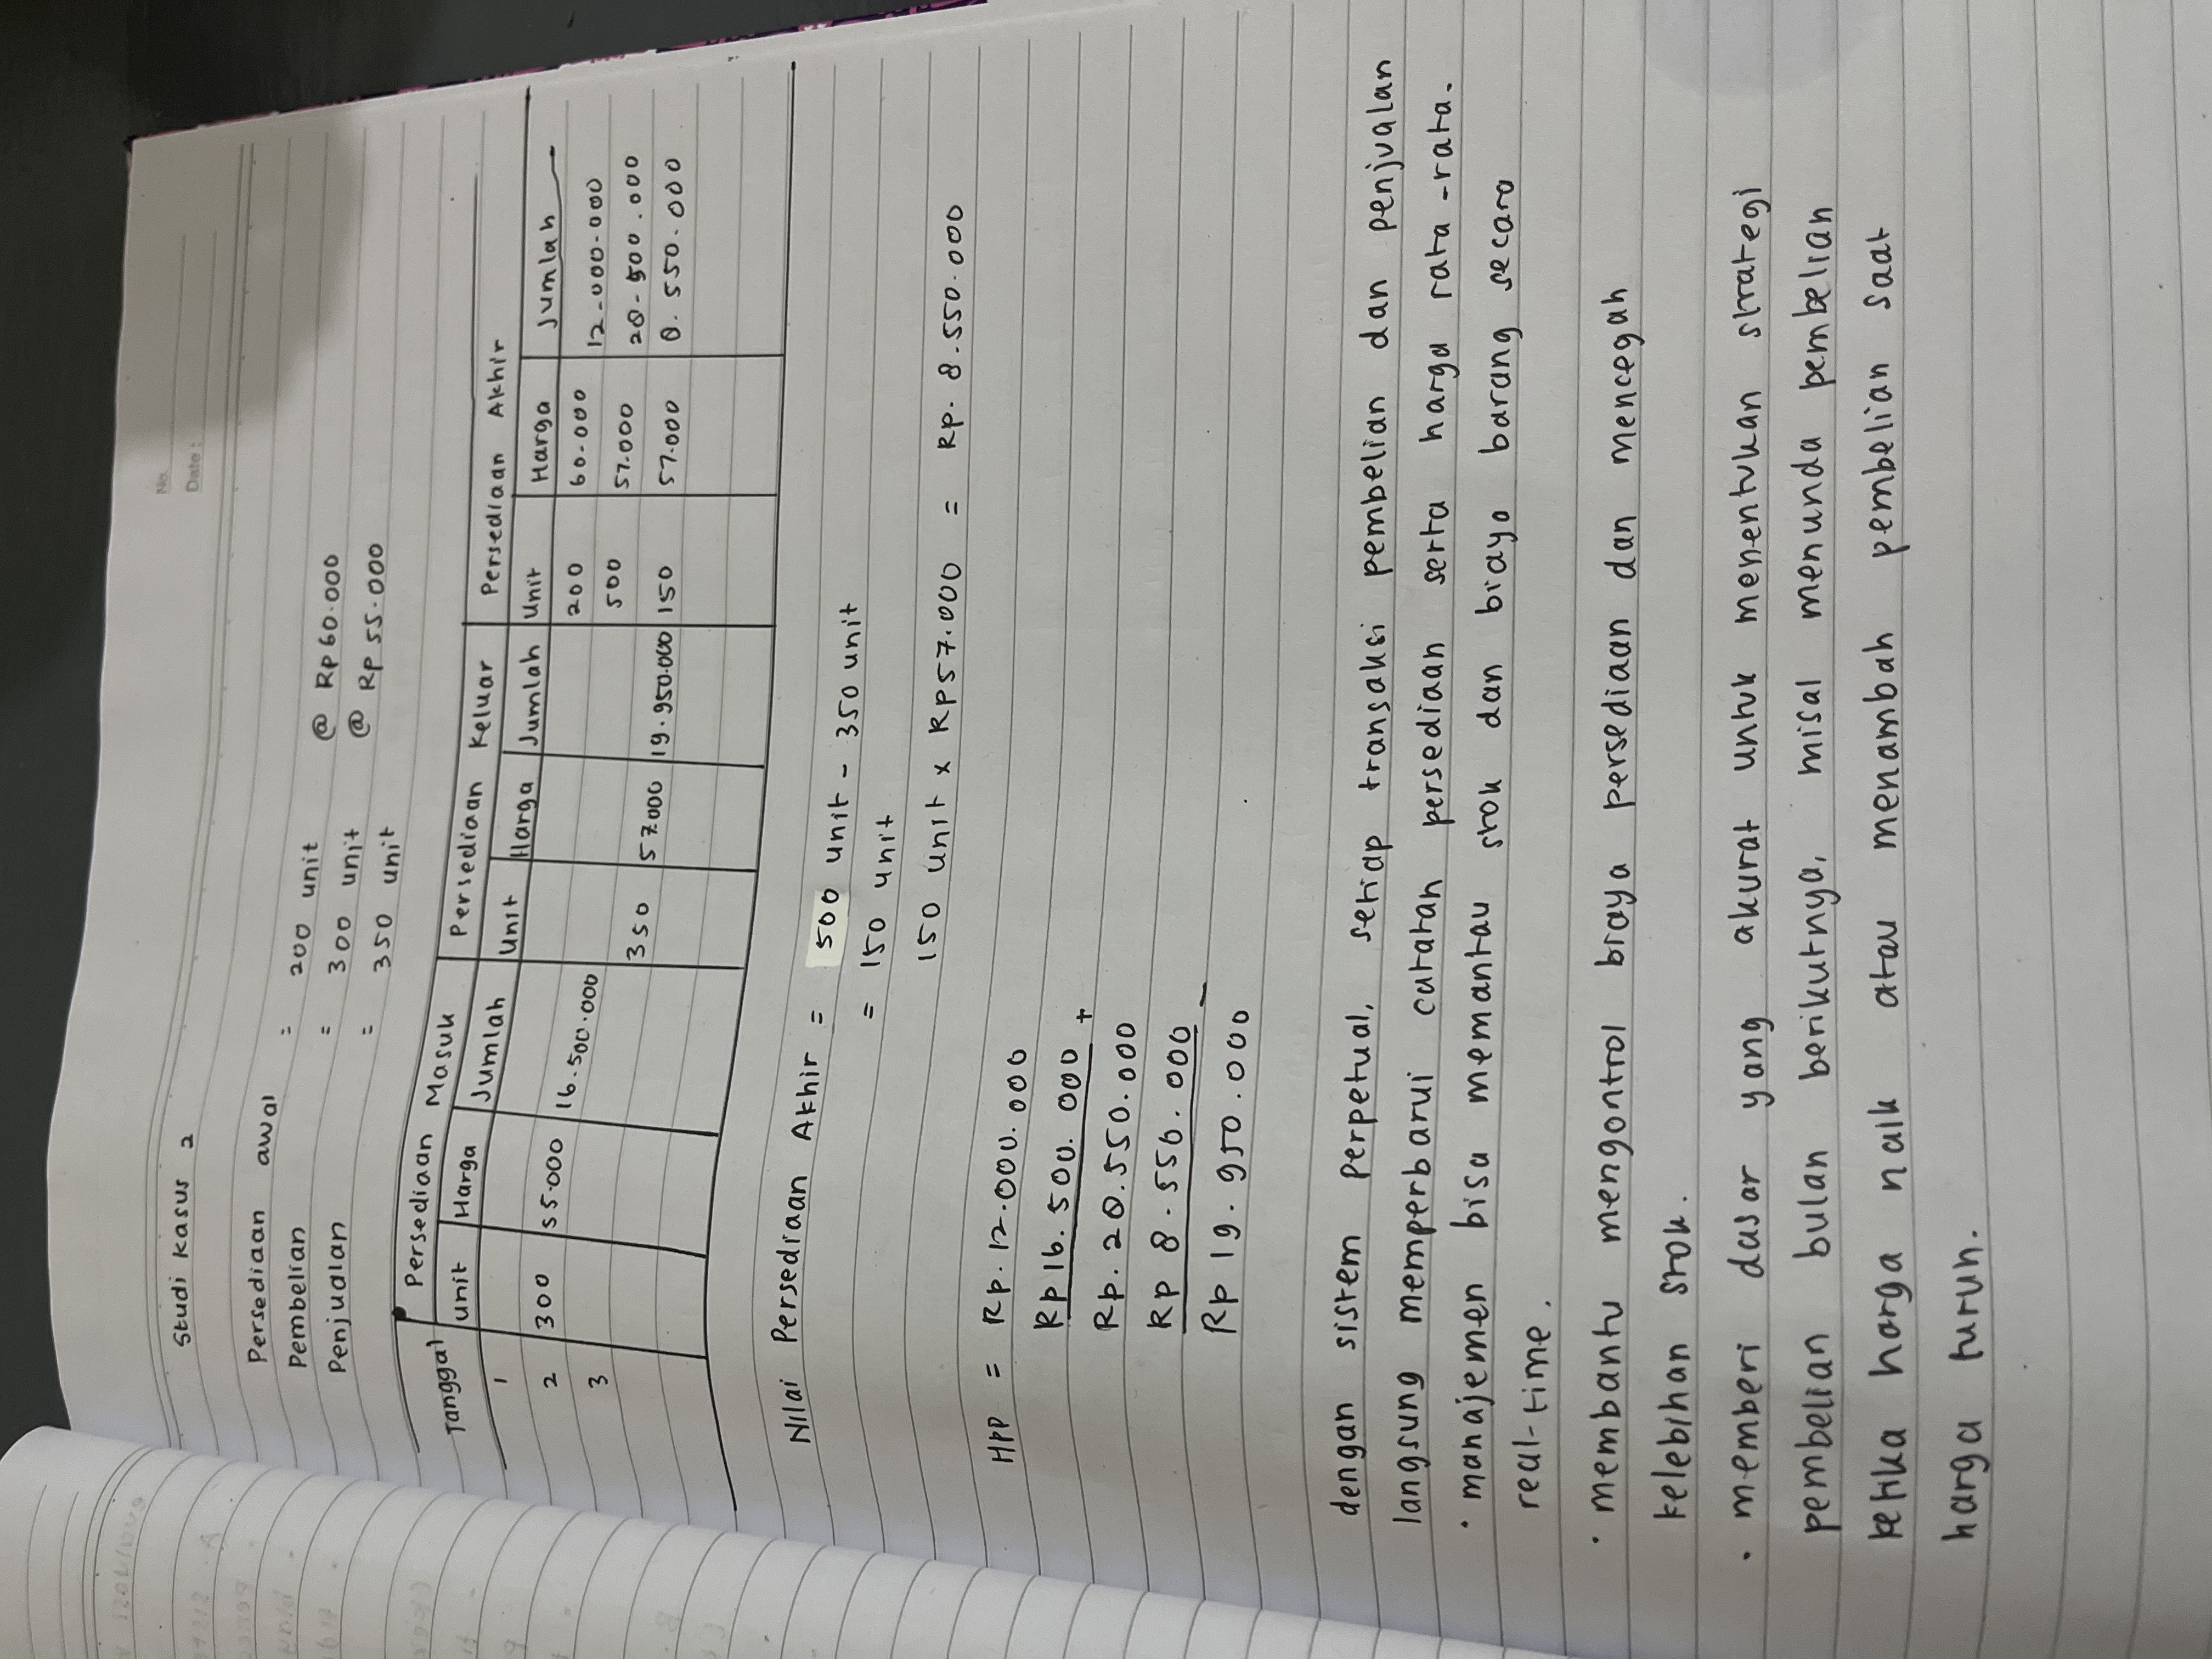 No.
Date:
Studi Kasus 2
Persediaan awal = 200 unit @ Rp 60.000
Pembelian = 300 unit @ Rp 55.000
Penjualan = 350 unit
Tanggal Persediaan Masuk Persediaan Keluar Persediaan Akhir
Unit Harga Jumlah Unit Harga Jumlah Unit Harga Jumlah
1 200 60.000 12.000.000
2 300 55.000 16.500.000 500 57.000 28.500.000
3 350 57.000 19.950.000 150 57.000 8.550.000
Nilai Persediaan Akhir = 500 unit - 350 unit
= 150 unit
150 unit x Rp57.000 = Rp. 8.550.000
HPP = Rp. 12.000.000
Rp 16.500.000 +
Rp. 28.550.000
Rp 8.550.000 -
Rp 19.950.000
dengan sistem perpetual, setiap transaksi pembelian dan penjualan
langsung memperbarui catatan persediaan serta harga rata-rata.
• manajemen bisa memantau stok dan biaya barang secara
real-time.
• membantu mengontrol biaya persediaan dan mencegah
kelebihan stok.
• memberi dasar yang akurat untuk menentukan strategi
pembelian bulan berikutnya, misal menunda pembelian
ketika harga naik atau menambah pembelian saat
harga turun.